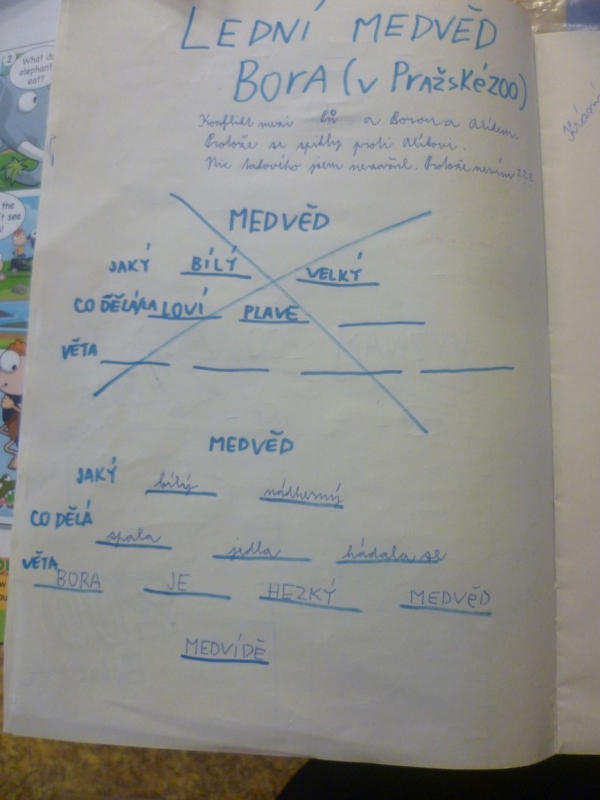 LEDNÍ MEDVĚD
BORA (V PRAŽSKÉ ZOO)
Konflikt mezi a Borou a Alíkem.
Protože se spikly proti Alíkovi.
Nic takového jsem nezažil. Protože nemám
MEDVĚD
JAKÝ BÍLÝ VELKÝ
CO DĚLÁ/LA LOVÍ PLAVE
VĚTA
MEDVĚD
JAKÝ bílý nádherný
CO DĚLÁ spala jedla hádala se
VĚTA BORA JE HEZKÝ MEDVěD
MEDVÍDĚ
2
What do
elephant
eat?
the
't see